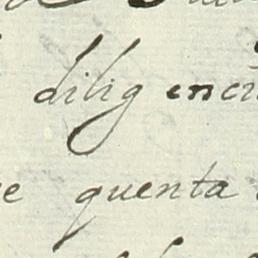 dilig enci
e quenta